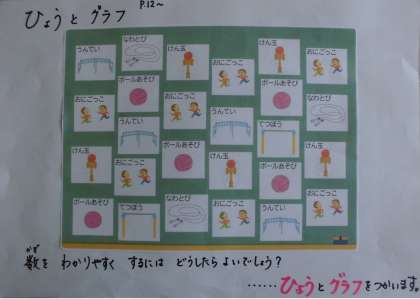 ひょうと グラフ P.12～
うんてい なわとび けん玉 おにごっこ けん玉 おにごっこ
おにごっこ ボールあそび おにごっこ うんてい ボールあそび なわとび
けん玉 うんてい ボールあそび けん玉 てつぼう けん玉
ボールあそび おにごっこ なわとび おにごっこ ボールあそび おにごっこ
てつぼう うんてい
かず
数を わかりやすく するには どうしたら よいでしょう？
……ひょうとグラフをつかいます。